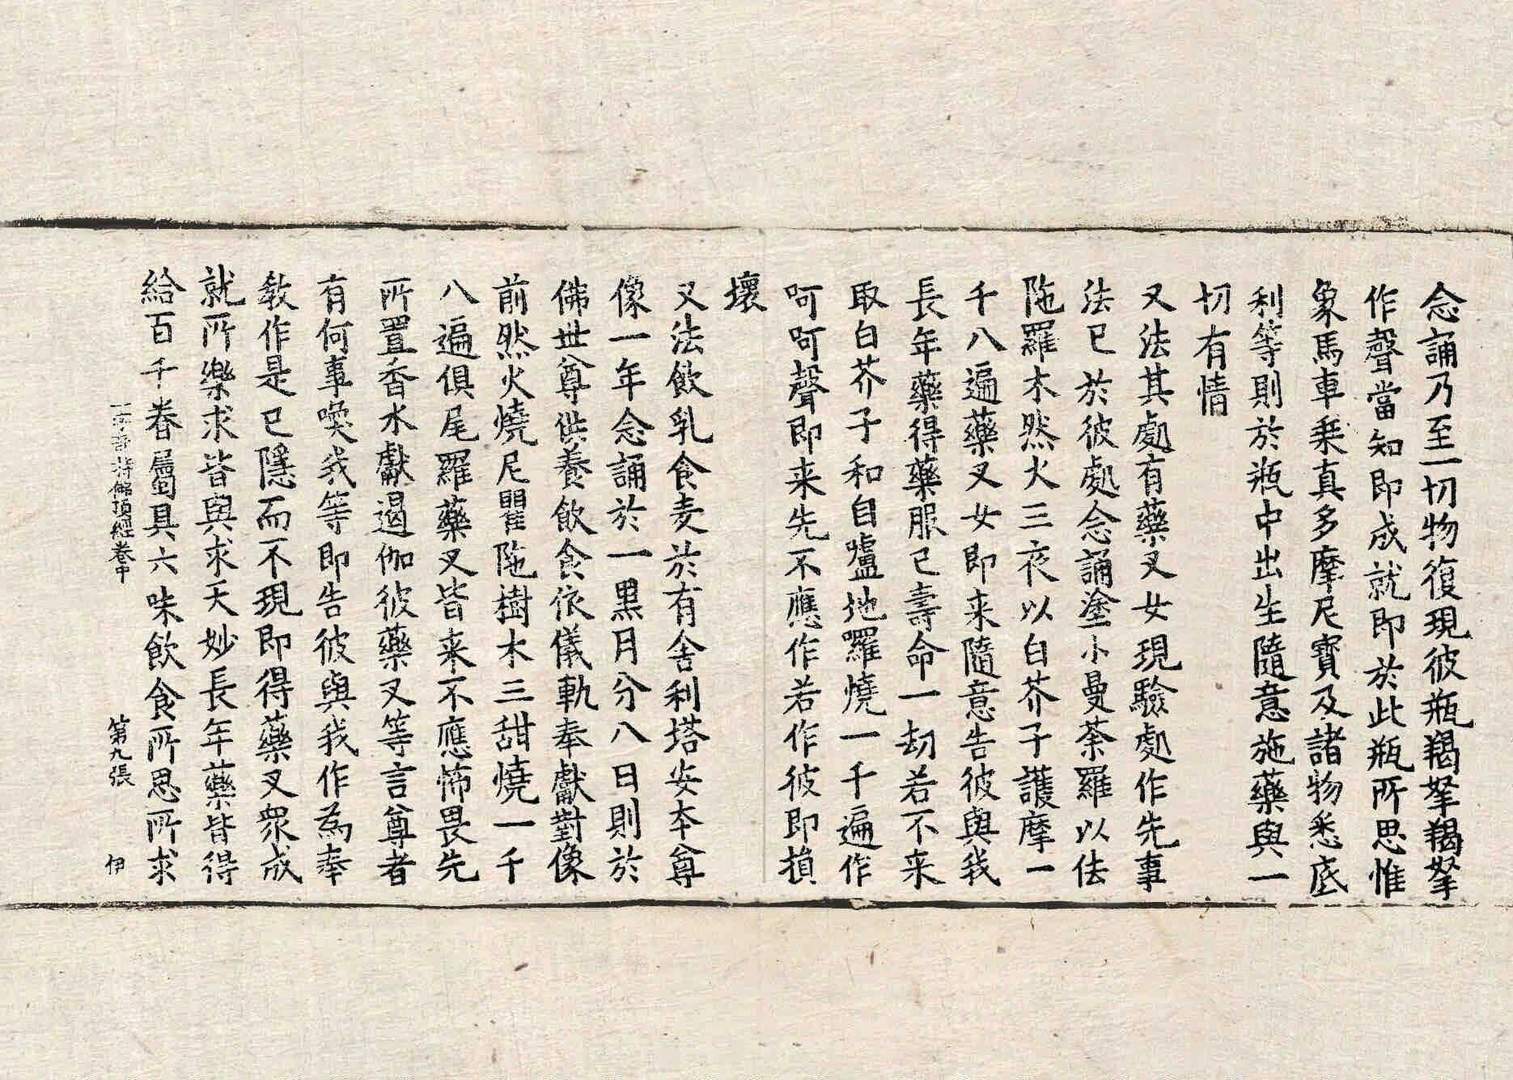 念誦乃至一切物復現彼瓶羯拏羯拏
作聲當知即成就即於此瓶所思惟
象馬車乗真多摩尼寶及諸物悉底
利等則於瓶中出生隨意施藥與一
切有情
又法其處有藥叉女現驗處作先事
法已於彼處念誦塗小曼荼羅以佉
陁羅木然火三夜以白芥子護摩一
千八遍藥叉女即来隨意告彼與我
長年藥得藥服已壽命一劫若不来
取白芥子和自嚧地羅燒一千遍作
呵呵聲即来先不應作若作彼即損
壞
又法飲乳食麦於有舍利塔安本尊
像一年念誦於一黒月分八日則於
佛世尊供養飲食依儀軌奉獻對像
前然火燒尼瞿陁樹木三甜燒一千
八遍俱尾羅藥叉皆来不應怖畏先
所置香水獻遏伽彼藥叉等言尊者
有何事喚我等即告彼與我作為奉
教作是已隱而不現即得藥叉衆成
就所樂求皆與求天妙長年藥皆得
給百千眷屬具六味飲食所思所求
一字 佛頂經卷中 第九張 伊